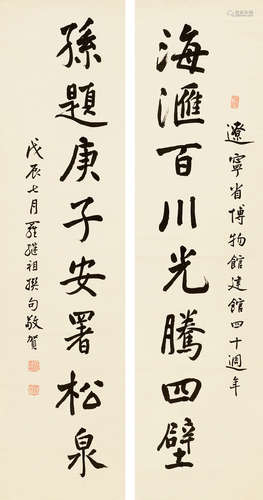 遼寧省博物館建館四十週年
海滙百川光騰四壁
孫題庚子安署松泉
戊辰七月羅繼祖撰句敬賀